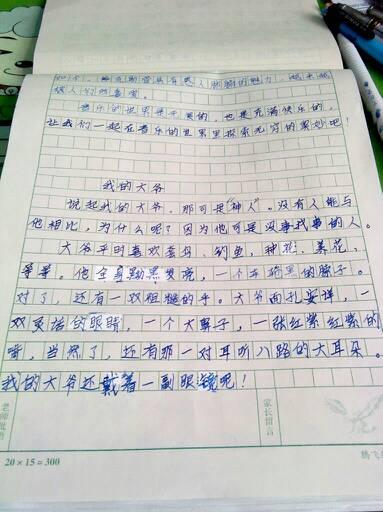 人们的喜爱。
音乐的世界是千变的，也是充满快乐的，
让我们一起在音乐的世界里探索无穷的奥妙吧！
我的大爷
说起我的大爷，那可是“神人”。没有人能与
他相比，为什么呢？因为他可是没事找事的人。
大爷平时喜欢养鸟、钓鱼，种花、养花，
等等。他全身黝黑发亮，一个车轱里的脖子。
对了，还有一双粗糙的手。大爷面孔安详，一
双灵活的眼睛，一个大鼻子，一张红紫红紫的
嘴，当然了，还有那一对耳听八路的大耳朵。
我的大爷还戴着一副眼镜呢！
老师批语
家长留言
20×15=300
腾飞